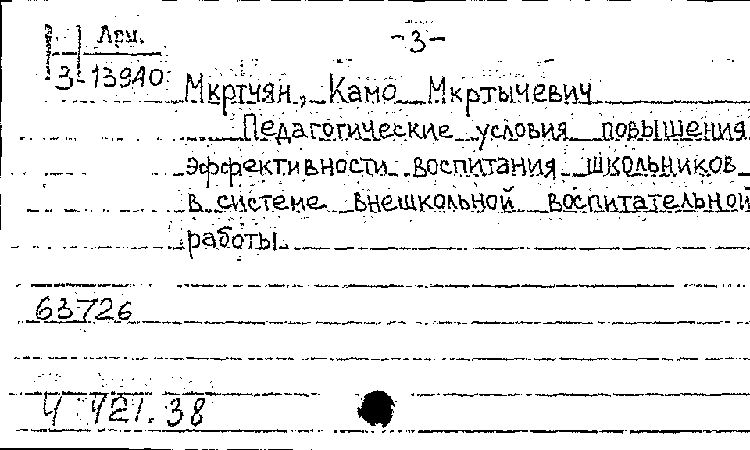 Арм. -3-
3-13940
Мкртчян, Камо Мкртычевич
Педагогические условия повышения
эффективности воспитания школьников
в системе внешкольной воспитательной
работы.
63726
Ч 421.38